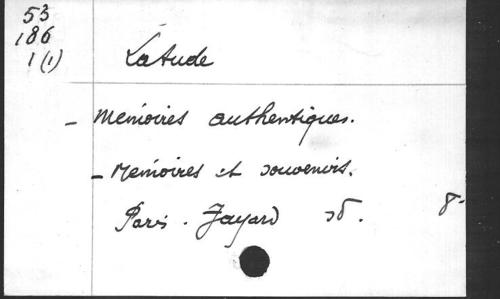 53
186
1(1)
Latude
- Mémoires authentiques.
- Mémoires et souvenirs.
Paris. Fayard sd. 8-